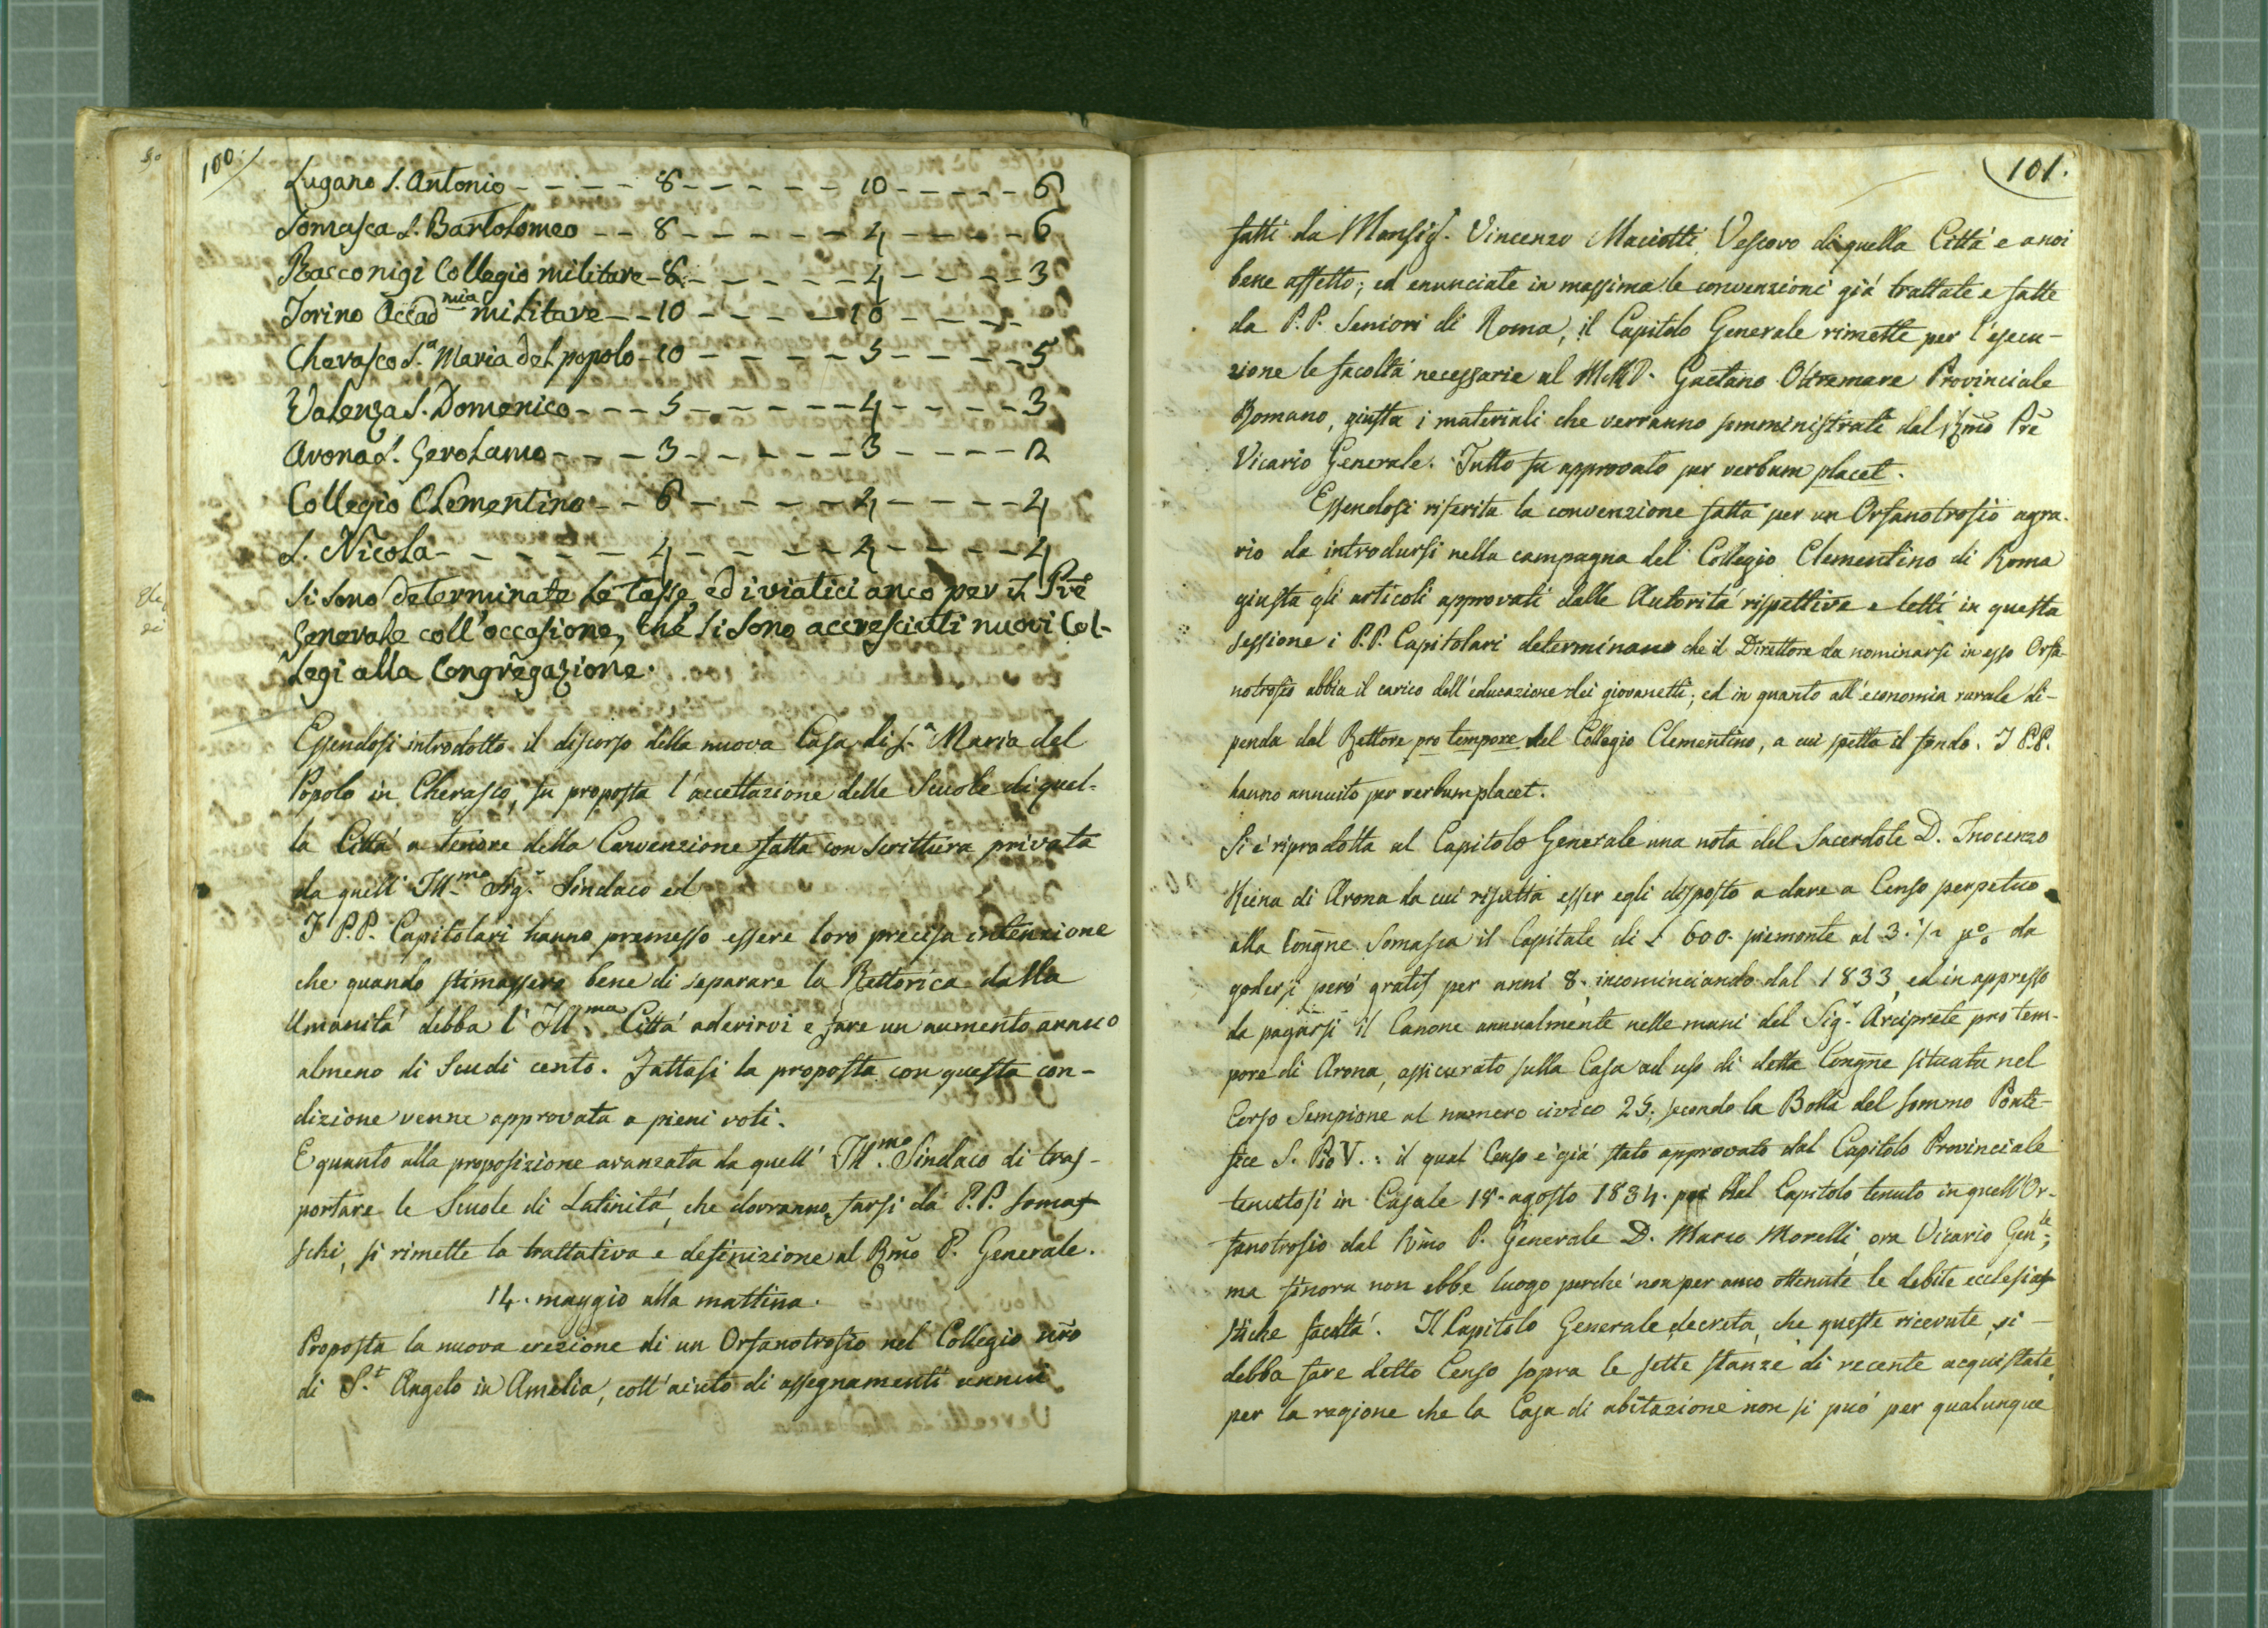 100.
Lugano S. Antonio - - - - - 8 - - - - - - 10 - - - - - 6
Somasca S. Bartolomeo - - 8 - - - - - - 4 - - - - - 6
Racconigi Collegio militare - 8 - - - - - - 4 - - - - 3
Torino Accad.mia militare - - 10 - - - - - 10 - - - -
Cherasco S.a Maria del popolo - 10 - - - - - 5 - - - - - 5
Valenza S. Domenico - - - 5 - - - - - - 4 - - - - - 3
Arona S. Gerolamo - - - - 3 - - - - - - 3 - - - - 2
Collegio Clementino - - 6 - - - - - 4 - - - - - 4
S. Nicola - - - - - - 4 - - - - - 4 - - - - - 4
Si sono determinate le tasse, ed i viatici anco per il Pre
Generale coll'occasione, che si sono accresciuti nuovi Col-
legi alla Congregazione.
Essendosi introdotto il discorso della nuova Casa di S.a Maria del
Popolo in Cherasco, fu proposta l'accettazione delle Scuole di quel-
la Città a tenore della Convenzione fatta con Scrittura privata
da quell' Ill.mo Sig.r Sindaco ed
I P.P. Capitolari hanno premesso essere loro precisa intenzione
che quando stimassero bene di separare la Rettorica dalla
Umanità debba l' Ill.ma Città aderirvi e fare un aumento annuo
almeno di Scudi cento. Fattasi la proposta con questa con-
dizione venne approvata a pieni voti.
E quanto alla proposizione avanzata da quell' Ill.mo Sindaco di tras-
portare le Scuole di Latinità, che dovranno farsi da P.P. Somas-
schi, si rimette la trattativa e definizione al Rmo P. Generale.
14. maggio alla mattina.
Proposta la nuova erezione di un Orfanotrofio nel Collegio nro
di S.t Angelo in Amelia, coll'aiuto di assegnamenti annui
101.
fatti da Monsig. Vincenzo Maciotti Vescovo di quella Città e a noi
bene affetto; ed enunciate in massima le convenzioni già trattate e fatte
da P.P. Seniori di Roma, il Capitolo Generale rimette per l'esecu-
zione le facoltà necessarie al M.R.P. Gaetano Oltremare Provinciale
Romano, giusta i materiali che verranno somministrati dal Rmo Pre
Vicario Generale. Tutto fu approvato per verbum placet.
Essendosi riferita la convenzione fatta per un Orfanotrofio agra-
rio da introdursi nella campagna del Collegio Clementino di Roma
giusta gli articoli approvati dalle Autorità rispettive e letti in questa
sessione i P.P. Capitolari determinano che il Direttore da nominarsi in esso Orfa-
notrofio abbia il carico dell'educazione dei giovanetti; ed in quanto all'economia rurale di-
penda dal Rettore pro tempore del Collegio Clementino, a cui spetta il fondo. I P.P.
hanno annuito per verbum placet.
Si è riprodotta al Capitolo Generale una nota del Sacerdote D. Inocenzo
di Arona da cui risulta esser egli disposto a dare a Censo perpetuo
alla Congne Somasca il Capitale di £ 600. piemonte al 3. 1/2 p% da
godersi però gratis per anni 8. incominciando dal 1833, ed in appresso
da pagarsi il Canone annualmente nelle mani del Sig.r Arciprete pro tem-
pore di Arona, assicurato sulla Casa ad uso di detta Congne situata nel
Corso Sempione al numero civico 25. secondo la Bolla del sommo Ponte-
fice S. Pio V.: il qual Censo è già stato approvato dal Capitolo Provinciale
tenutosi in Casale 18. agosto 1834. nel Capitolo tenuto in quell'Or-
fanotrofio dal Rmo P. Generale D. Marco Morelli, ora Vicario Gen.le;
ma finora non ebbe luogo perché non per anco ottenute le debite ecclesias-
stiche facoltà. Il Capitolo Generale decreta, che queste ricevute, si -
debba fare detto Censo sopra le sette stanze di recente acquistate,
per la ragione che la Casa di abitazione non si può per qualunque